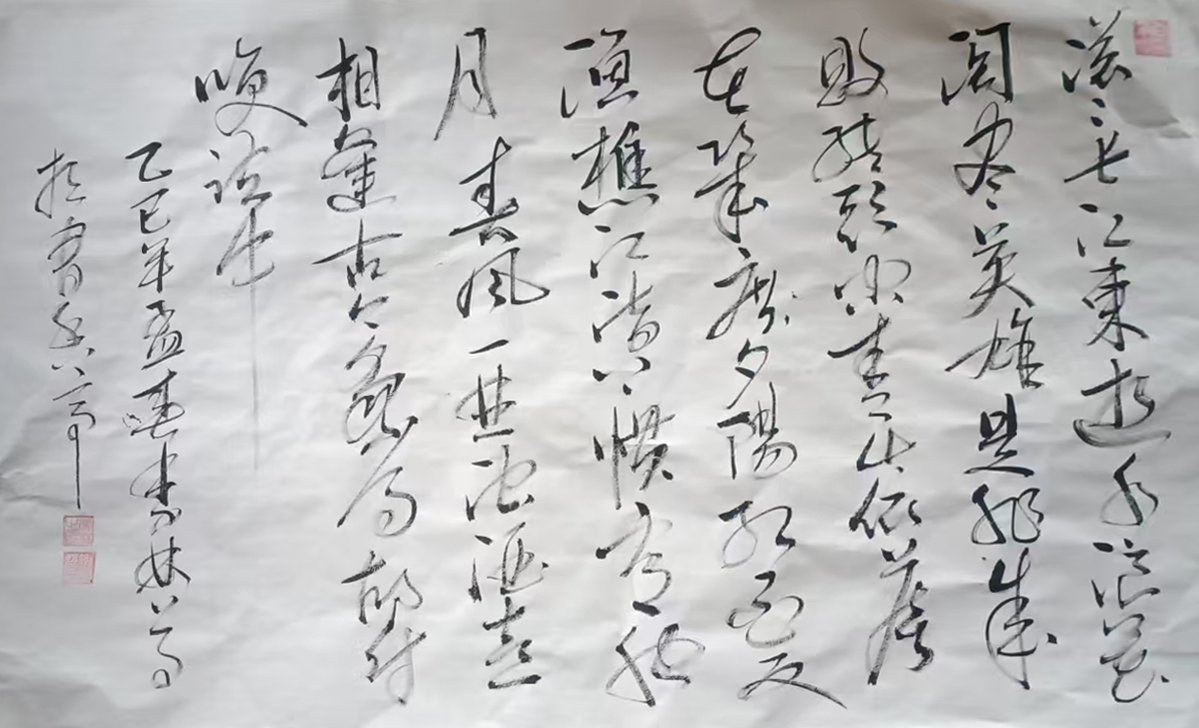 滚々长江東逝水浪花
淘尽英雄是非成
败转头空青山依旧
在幾度夕陽红白发
渔樵江渚上惯看秋
月春風一壶浊酒喜
相逢古今多少事都付
笑谈中
乙巳年孟春